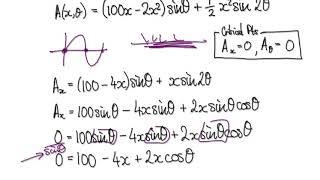 A(x,θ) = (100x - 2x²) sinθ + ½ x² sin 2θ
Critical Pts
Aₓ = 0, A_θ = 0
Aₓ = (100 - 4x) sinθ + x sin2θ
Aₓ = 100 sinθ - 4x sinθ + 2x sinθ cosθ
0 = 100 sinθ - 4x sinθ + 2x sinθ cosθ
sinθ
0 = 100 - 4x + 2x cosθ